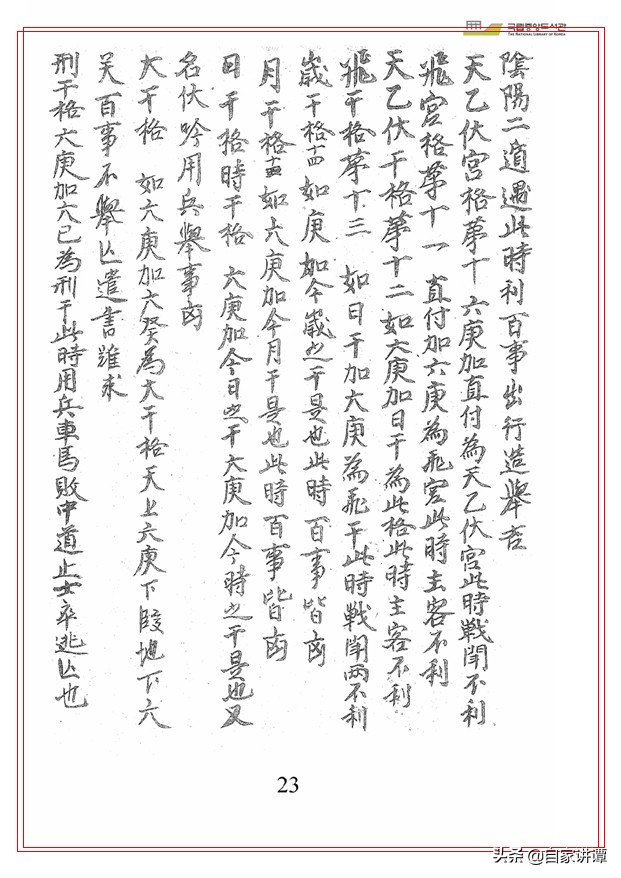 국립중앙도서관
THE NATIONAL LIBRARY OF KOREA
陰陽二遁遇此時利百事出行造舉吉
天乙伏宮格苐十 六庚加直付為天乙伏宮此時戰鬪不利
飛宮格苐十一 直付加六庚為飛宮此時主客不利
天乙伏干格苐十二 如六庚加日干為此格此時主客不利
飛干格苐十三 如日干加六庚為飛干此時戰鬪兩不利
歲干格十四 如庚加今歲之干是也此時百事皆凶
月干格十五 如六庚加今月干是也此時百事皆凶
日干格時干格 六庚加今日之干六庚加今時之干是也又
名伏吟用兵舉事凶
大干格 如六庚加六癸為大干格天上六庚下臨地下六
癸百事不舉亾遣書難求
刑干格六庚加六己為刑干此時用兵車馬敗中道止士卒逃亾也
23
头条 @自家讲谭